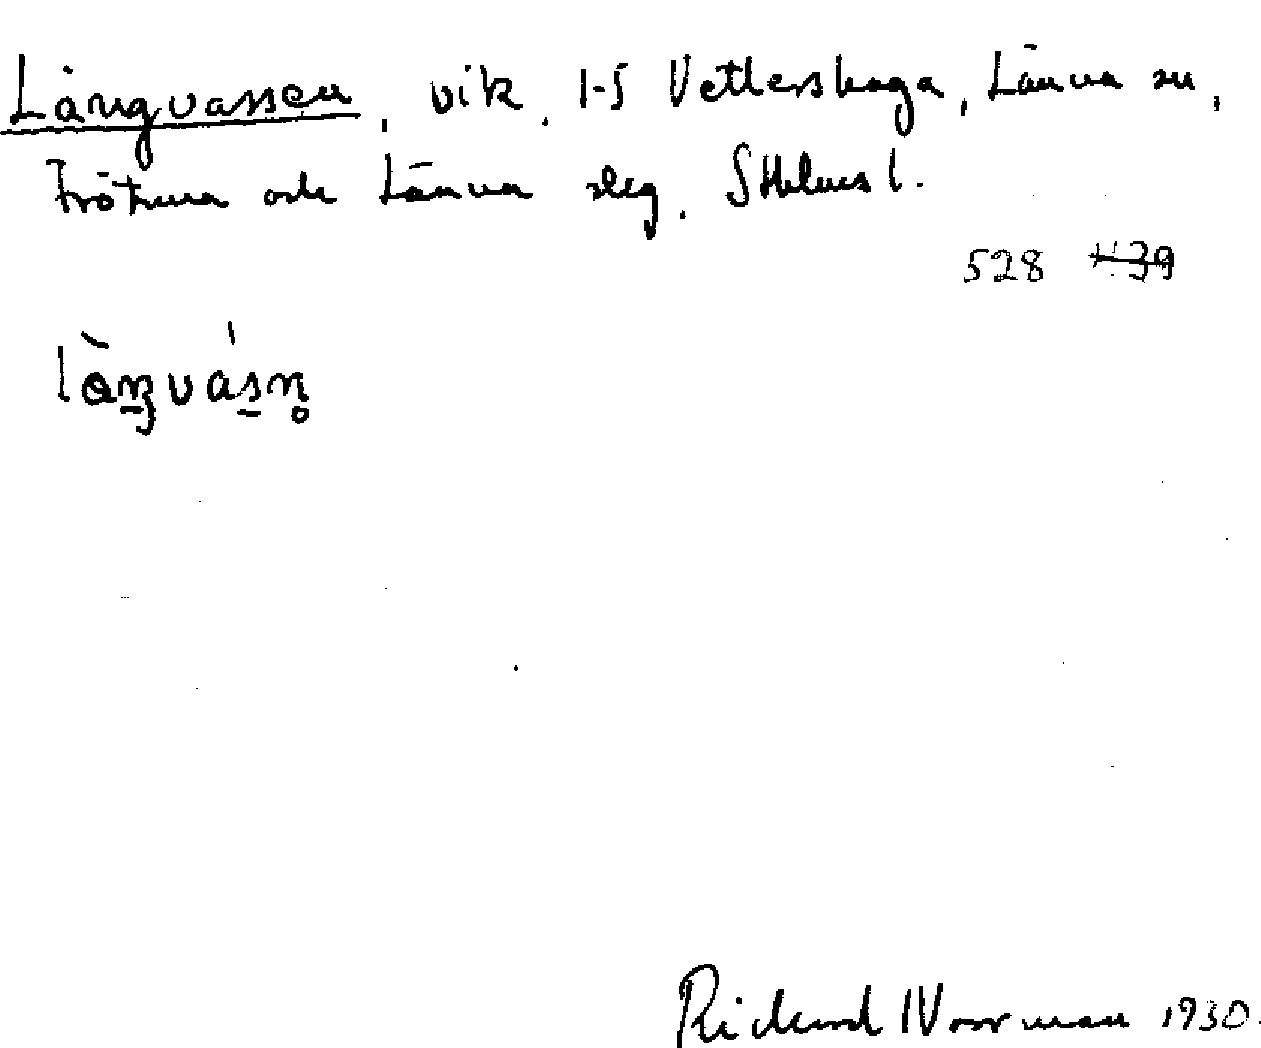 Långvassen, vik, 1-5 Vettershaga, Länna sn,
Frötuna och Länna slg, Sthlms l.
528
Richard Norrman 1930.